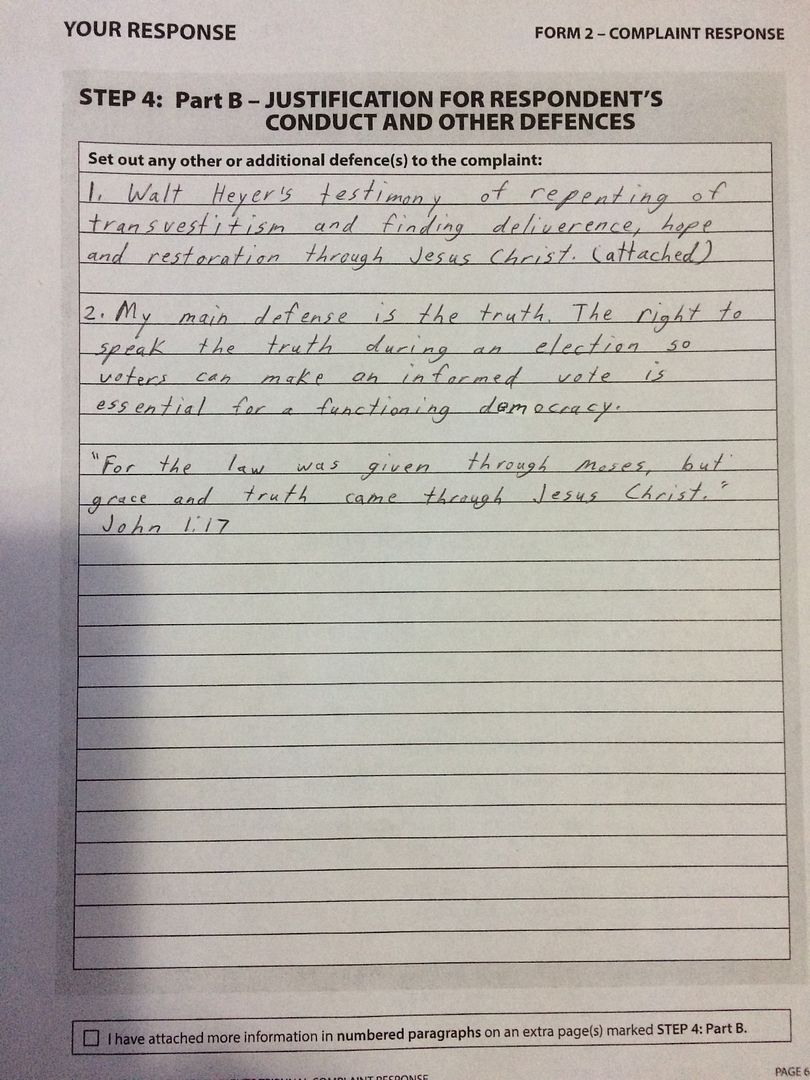 YOUR RESPONSE
FORM 2 – COMPLAINT RESPONSE
STEP 4: Part B – JUSTIFICATION FOR RESPONDENT'S
CONDUCT AND OTHER DEFENCES
Set out any other or additional defence(s) to the complaint:
1. Walt Heyer's testimony of repenting of
transvestitism and finding deliverence, hope
and restoration through Jesus Christ. (attached)
2. My main defense is the truth. The right to
speak the truth during an election so
voters can make an informed vote is
essential for a functioning democracy.
"For the law was given through Moses, but
grace and truth came through Jesus Christ."
John 1:17
I have attached more information in numbered paragraphs on an extra page(s) marked STEP 4: Part B.
COMPLAINT RESPONSE
PAGE 6